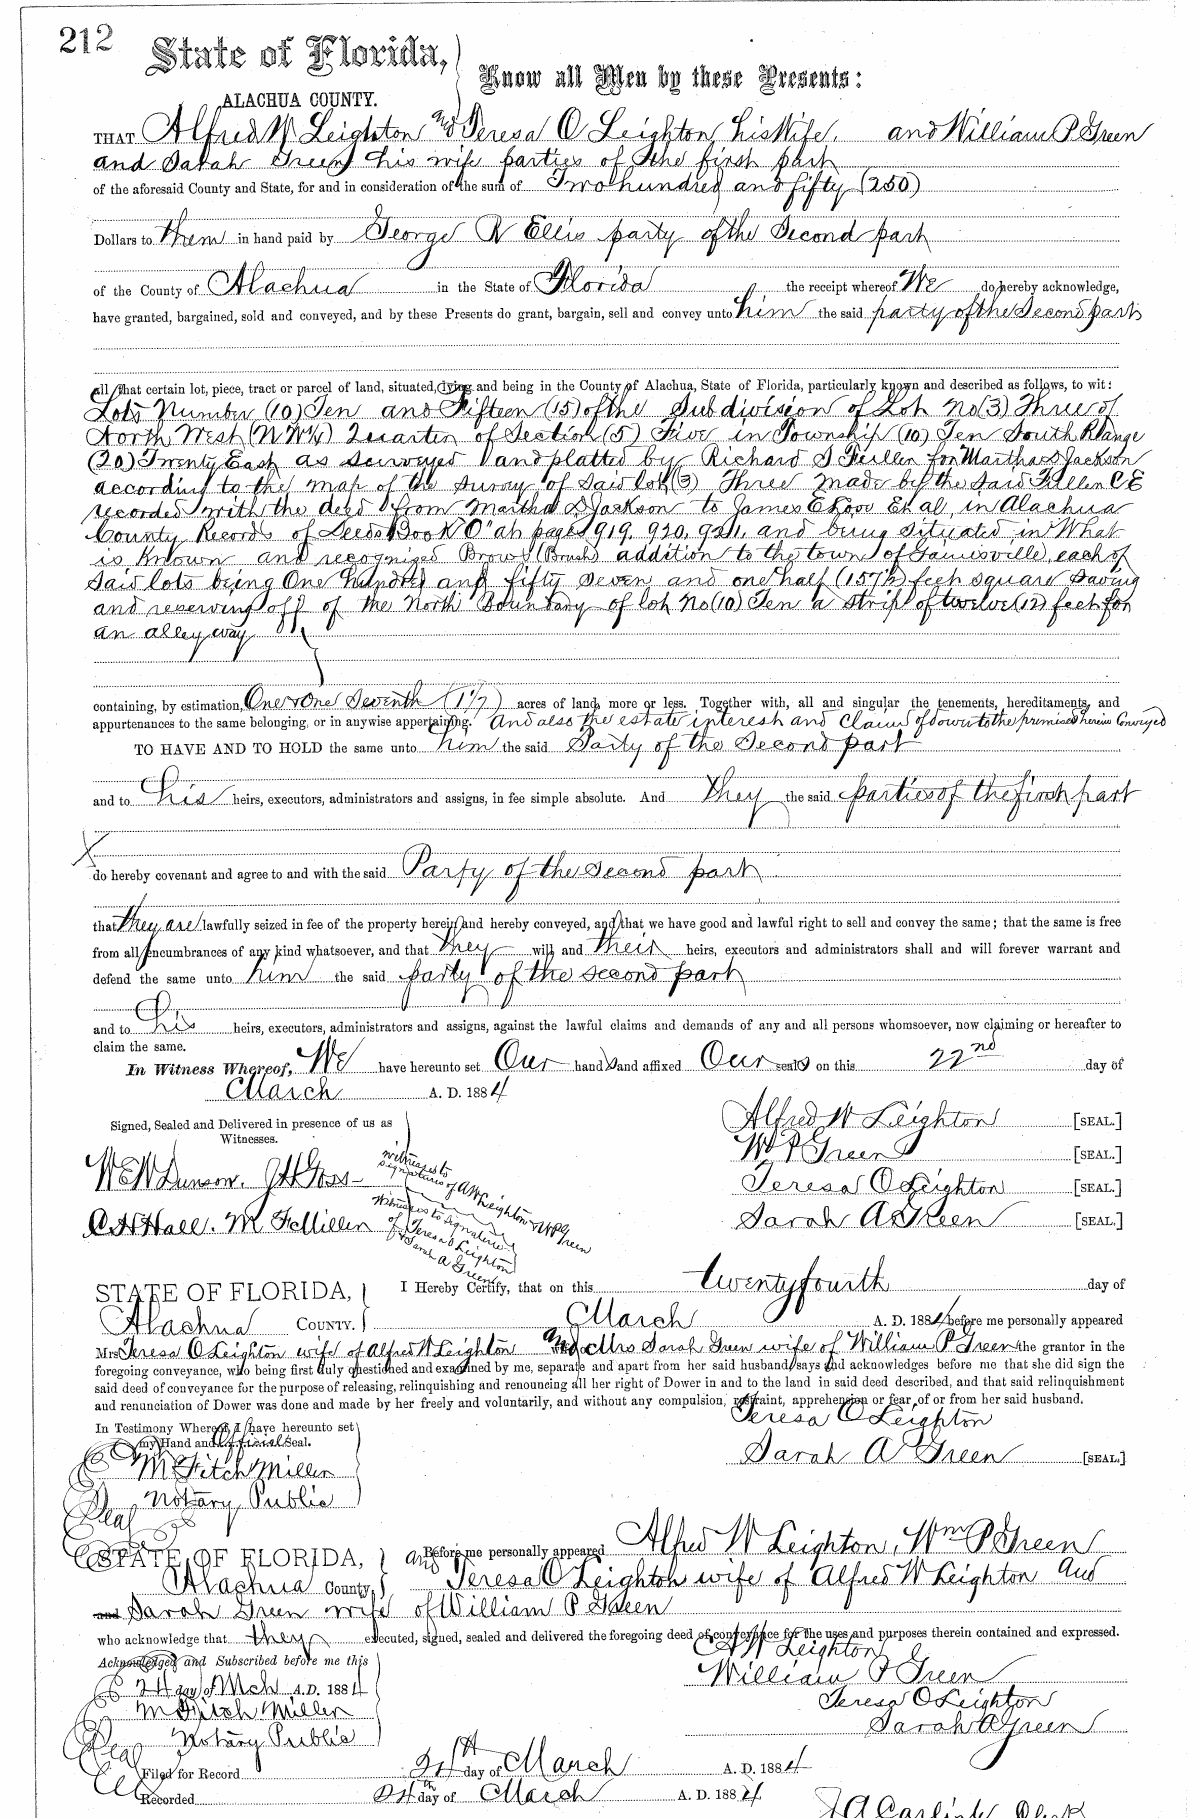 212
State of Florida,
ALACHUA COUNTY.
Know all Men by these Presents:
THAT Alfred W Leighton and Teresa O Leighton his Wife, and William P Green
and Sarah Green his wife parties of the first part
of the aforesaid County and State, for and in consideration of the sum of Two hundred and fifty (250)
Dollars to them in hand paid by George W Ellis party of the Second part
of the County of Alachua in the State of Florida the receipt whereof We do hereby acknowledge,
have granted, bargained, sold and conveyed, and by these Presents do grant, bargain, sell and convey unto him the said party of the Second part
all that certain lot, piece, tract or parcel of land, situated, lying and being in the County of Alachua, State of Florida, particularly known and described as follows, to wit:
Lots Number (10) Ten and Fifteen (15) of the Subdivision of Lot No (3) Three of
North West (N W ¼) Quarter of Section (5) Five in Township (10) Ten South Range
(20) Twenty East as surveyed and platted by Richard S Fuller for Martha S Jackson
according to the map of the survey of said lot (3) Three made by the said Fuller C E
recorded with the deed from Martha S Jackson to James Et al, in Alachua
County Records of Deeds Book "O" at pages 919, 920, 921, and being situated in What
is Known and recognized (Brush) addition to the town of Gainesville, each of
Said lots being One hundred and fifty seven and one half (157½) feet square saving
and reserving off of the North Boundary of lot No (10) Ten a strip of twelve (12) feet for
an alley way
containing, by estimation, One & One Seventh (1 1/7) acres of land, more or less. Together with, all and singular the tenements, hereditaments, and
appurtenances to the same belonging, or in anywise appertaining. And also the estate interest and claim of dower to the premises herein Conveyed
TO HAVE AND TO HOLD the same unto him the said Party of the Second part
and to his heirs, executors, administrators and assigns, in fee simple absolute. And they the said parties of the first part
X
do hereby covenant and agree to and with the said Party of the Second part
that they are lawfully seized in fee of the property herein and hereby conveyed, and that we have good and lawful right to sell and convey the same; that the same is free
from all encumbrances of any kind whatsoever, and that they will and their heirs, executors and administrators shall and will forever warrant and
defend the same unto him the said party of the second part
and to his heirs, executors, administrators and assigns, against the lawful claims and demands of any and all persons whomsoever, now claiming or hereafter to
claim the same.
In Witness Whereof, We have hereunto set Our hands and affixed Our seals on this 22nd day of
March A. D. 1884
Signed, Sealed and Delivered in presence of us as
Witnesses.
Alfred W Leighton [SEAL.]
Wm P Green [SEAL.]
W E W Dunson. J H Goss
Witnesses to
signatures of A W Leighton & W P Green
Teresa O Leighton [SEAL.]
C. H Hall. M F Miller
Witnesses to Signatures
of Teresa O Leighton
& Sarah A Green
Sarah A Green [SEAL.]
STATE OF FLORIDA,
Alachua COUNTY.
I Hereby Certify, that on this twenty fourth day of
March A. D. 1884 before me personally appeared
Mrs Teresa O Leighton wife of Alfred W Leighton and Mrs Sarah Green wife of William P Green the grantor in the
foregoing conveyance, who being first duly questioned and examined by me, separate and apart from her said husband, says and acknowledges before me that she did sign the
said deed of conveyance for the purpose of releasing, relinquishing and renouncing all her right of Dower in and to the land in said deed described, and that said relinquishment
and renunciation of Dower was done and made by her freely and voluntarily, and without any compulsion, restraint, apprehension or fear, of or from her said husband.
Teresa O Leighton
In Testimony Whereof, I have hereunto set
my Hand and Official Seal.
Sarah A Green [SEAL.]
M Fitch Miller
Notary Public
Seal
STATE OF FLORIDA,
Alachua County,
Before me personally appeared Alfred W Leighton, Wm P Green
and Teresa O Leighton wife of Alfred W Leighton And
and Sarah Green wife of William P Green
who acknowledge that they executed, signed, sealed and delivered the foregoing deed of conveyance for the uses and purposes therein contained and expressed.
Acknowledged and Subscribed before me this
24 day of Mch A.D. 1884
M Fitch Miller
Notary Public
Seal
A W Leighton
William P Green
Teresa O Leighton
Sarah A Green
Filed for Record 24th day of March A. D. 1884
Recorded 24th day of March A. D. 1884